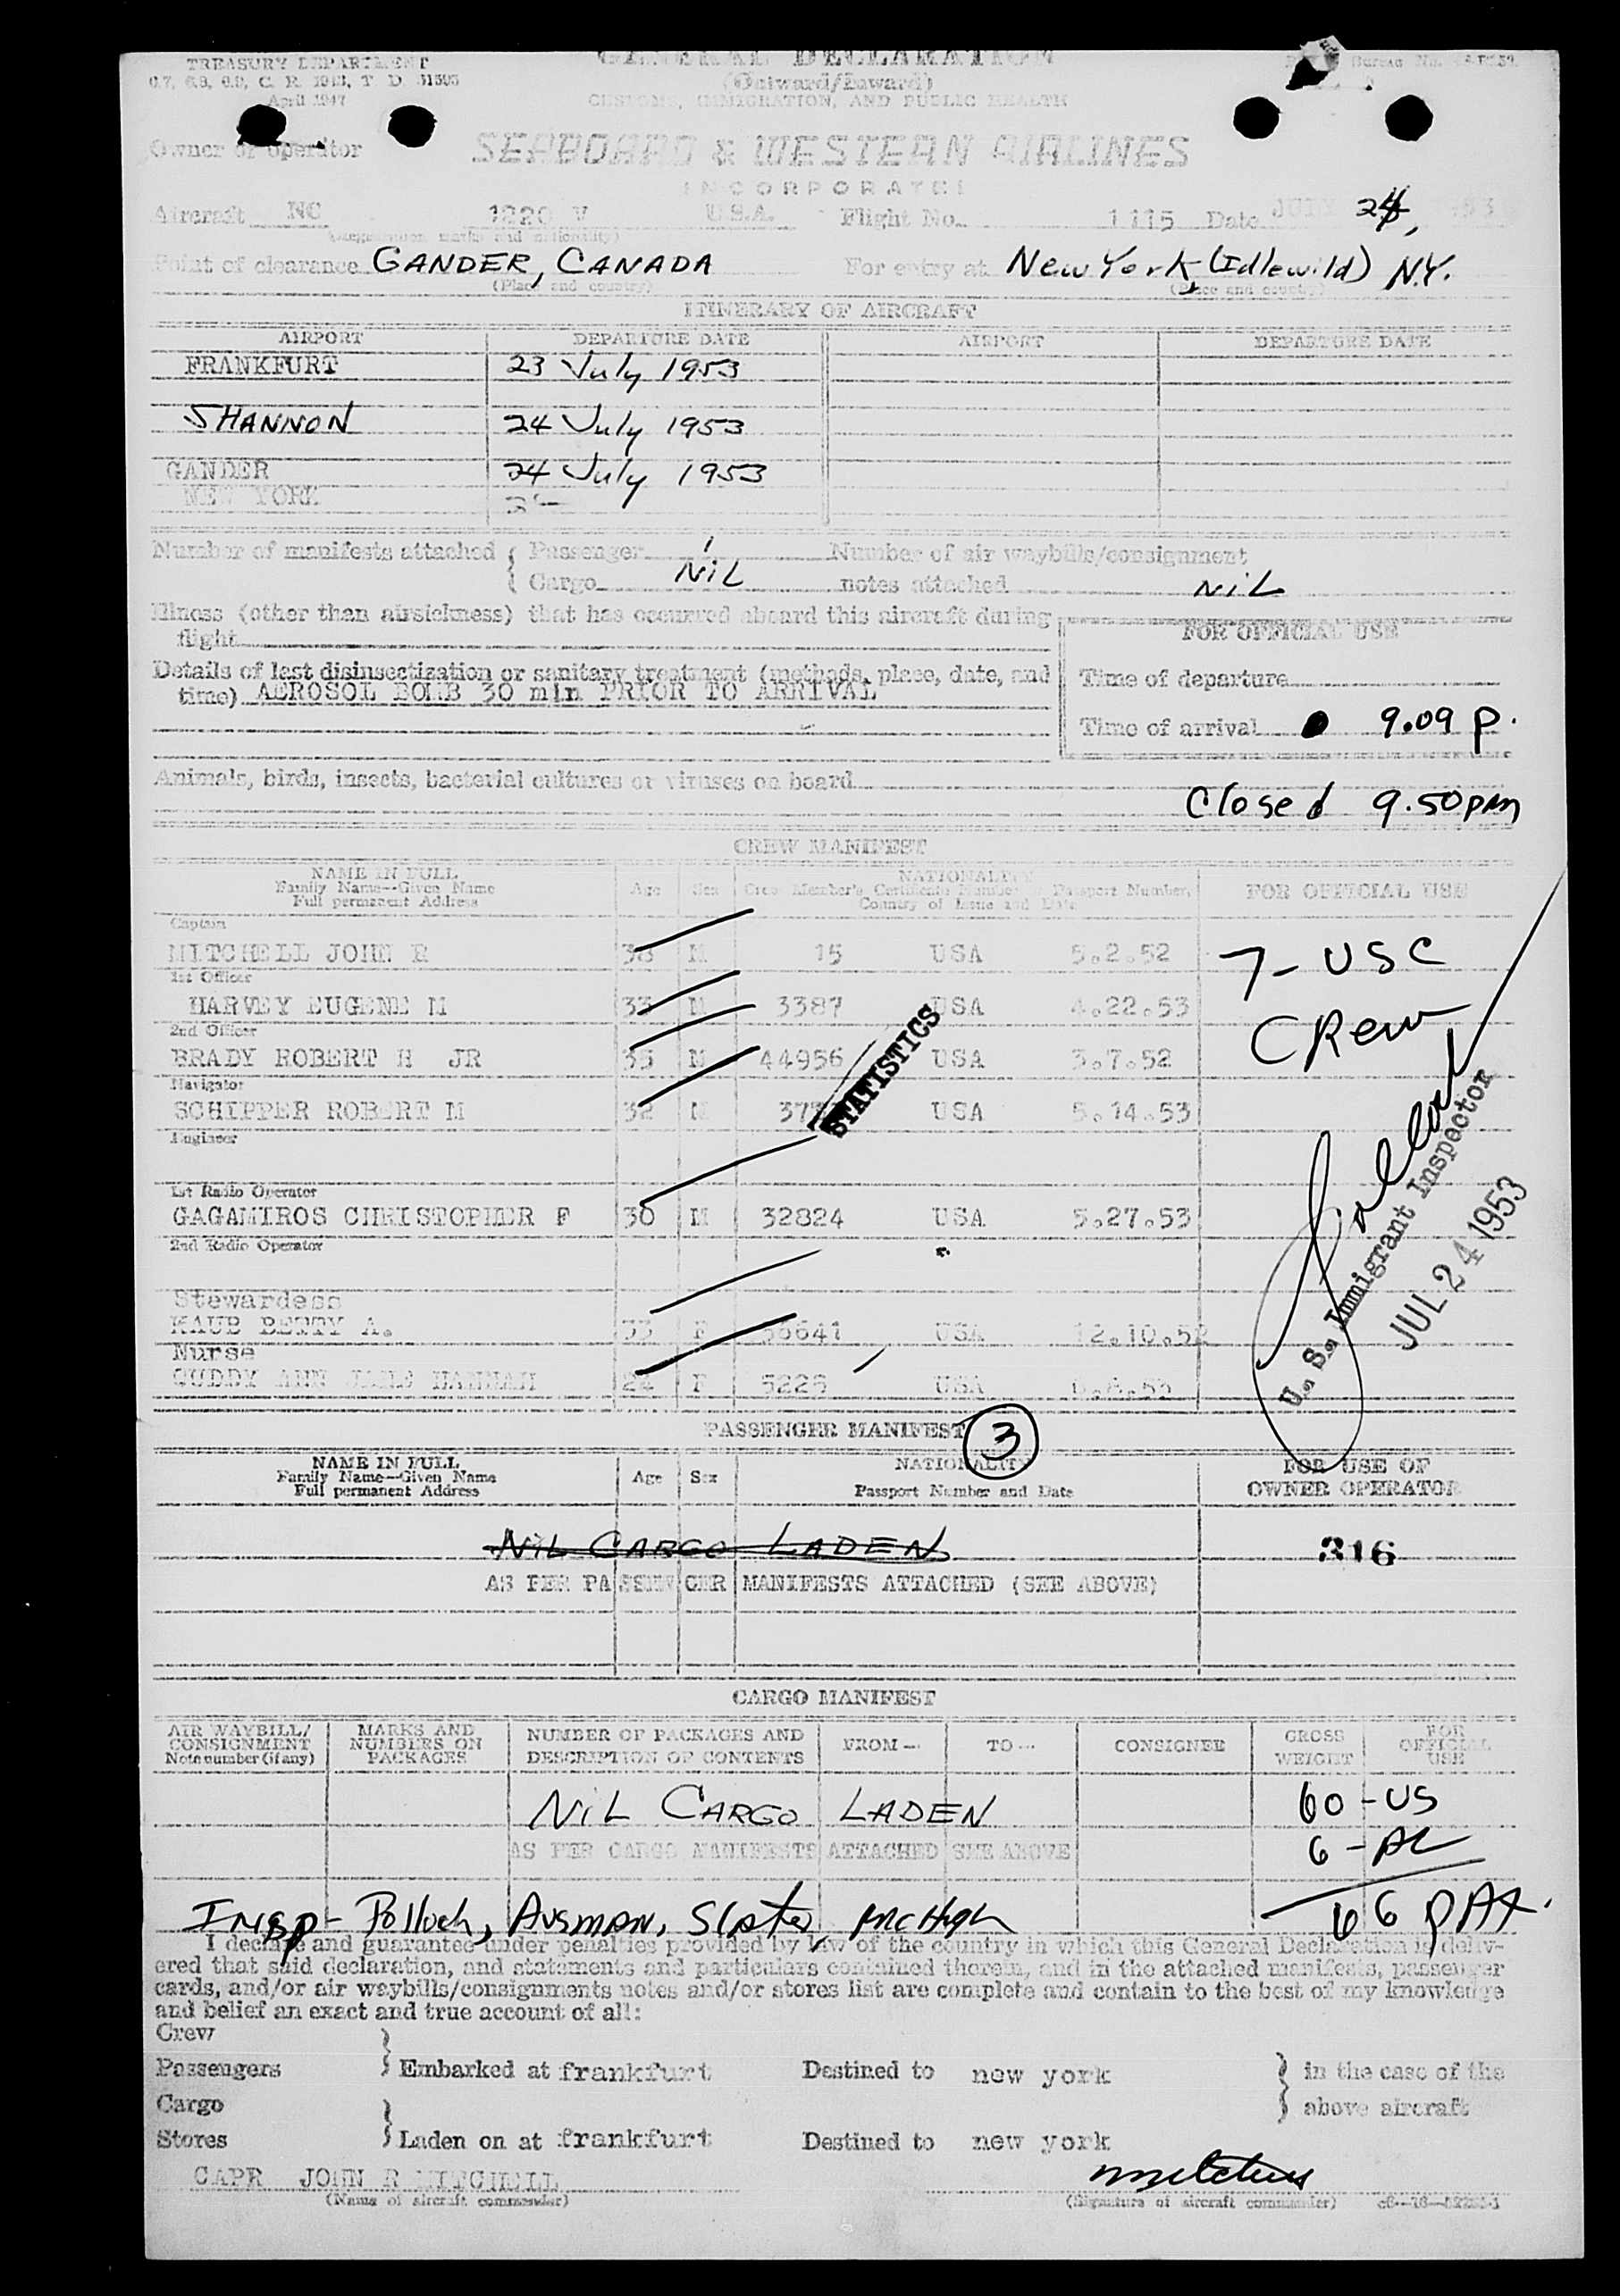 TREASURY DEPARTMENT
GENERAL DECLARATION
(Outward/Inward)
April 1947
CUSTOMS, IMMIGRATION, AND PUBLIC HEALTH
Owner or operator SEABOARD & WESTERN AIRLINES
INCORPORATED
Aircraft NC 1220 V U.S.A. Flight No. 1115 Date JULY 24,
(Registration marks and nationality)
Point of clearance GANDER, CANADA For entry at New York (Idlewild) N.Y.
(Place and country) (Place and country)
ITINERARY OF AIRCRAFT
AIRPORT DEPARTURE DATE AIRPORT DEPARTURE DATE
FRANKFURT 23 July 1953
SHANNON 24 July 1953
GANDER 24 July 1953
NEW YORK
Number of manifests attached { Passenger 1 Number of air waybills/consignment
{ Cargo NiL notes attached NiL
Illness (other than airsickness) that has occurred aboard this aircraft during
flight
FOR OFFICIAL USE
Details of last disinsectization or sanitary treatment (methods, place, date, and
time) AEROSOL BOMB 30 min PRIOR TO ARRIVAL
Time of departure
Time of arrival 9.09 p.
Animals, birds, insects, bacterial cultures or viruses on board
Closed 9.50pm
CREW MANIFEST
NAME IN FULL
Family Name--Given Name
Full permanent Address
Age Sex
NATIONALITY
Crew Member's Certificate Number or Passport Number,
Country of Issue and Date
FOR OFFICIAL USE
Captain
MITCHELL JOHN R 38 M 15 USA 5.2.52
7- USC
1st Officer
HARVEY EUGENE M 33 M 3387 USA 4.22.53
CRew
2nd Officer
BRADY ROBERT H JR 35 M 44956 USA 3.7.52
Navigator
SCHIPPER ROBERT M 32 M USA 5.14.53
STATISTICS
Engineer
1st Radio Operator
GAGAMIROS CHRISTOPHER F 30 M 32824 USA 5.27.53
2nd Radio Operator
U. S. Immigrant Inspector
JUL 24 1953
Stewardess
KAUB BETTY A. 33 F USA 12.10.52
Nurse
ANN HANNAH 24 F 5225 USA
PASSENGER MANIFEST 3
NAME IN FULL
Family Name--Given Name
Full permanent Address
Age Sex
NATIONALITY
Passport Number and Date
FOR USE OF
OWNER OPERATOR
NiL CARGO LADEN
316
AS PER PASSENGER MANIFESTS ATTACHED (SEE ABOVE)
CARGO MANIFEST
AIR WAYBILL/
CONSIGNMENT
Note number (if any)
MARKS AND
NUMBERS ON
PACKAGES
NUMBER OF PACKAGES AND
DESCRIPTION OF CONTENTS
FROM-- TO-- CONSIGNEE
GROSS
WEIGHT
FOR
OFFICIAL
USE
NiL CARGO LADEN
60 - US
AS PER CARGO MANIFESTS ATTACHED SEE ABOVE
6 - AL
Insp - Pollock, Ausman, Slater McHugh
66 PAX.
I declare and guarantee under penalties provided by law of the country in which this General Declaration is deliv-
ered that said declaration, and statements and particulars contained therein, and in the attached manifests, passenger
cards, and/or air waybills/consignments notes and/or stores list are complete and contain to the best of my knowledge
and belief an exact and true account of all:
Crew
Passengers } Embarked at frankfurt Destined to new york } in the case of the
Cargo above aircraft
Stores } Laden on at frankfurt Destined to new york
CAPR JOHN R MITCHELL
(Name of aircraft commander) (Signature of aircraft commander)